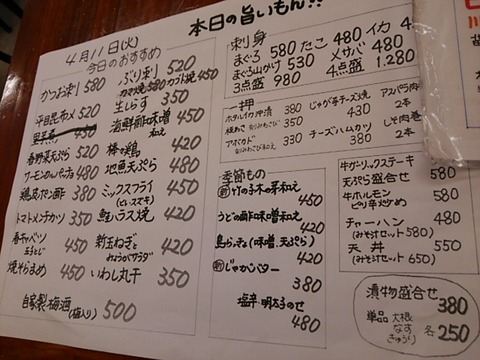 本日の旨いもん!!
4月11日(火)
今日のおすすめ
かつお刺 580
ぶり刺 520
カマ焼 580 カブト焼 450
平目昆布〆 520
生しらす 350
海鮮酢味噌和え 450
春野菜天ぷら 520
棒々鶏 420
地魚天ぷら 480
鶏皮ポン酢 380
ミックスフライ 450
トマトメンチカツ 350
鮭ハラス焼 420
春キャベツ玉子とじ 450
新玉ねぎとみょうがサラダ 420
焼そらまめ 450
いわし丸干 350
自家製梅酒(梅入り) 500
刺身
まぐろ 580 たこ 480 イカ
まぐろ山かけ 530 〆サバ 480
3点盛 980 4点盛 1.280
一押
ホタルイカ沖漬 380
じゃが芋チーズ焼 430
アスパラ肉巻 2本
390
しそ肉巻 2本
アボカド 330
チーズハムカツ 380
季節もの
450
うどの酢味噌和え 450
420
新じゃがバター 380
塩辛・明太子のせ 480
牛ガーリックステーキ 580
天ぷら盛合せ 580
牛ホルモンピリ辛炒め 580
チャーハン 480
(みそ汁セット 580)
天丼 550
(みそ汁セット 650)
漬物盛合せ 380
単品 大根 なす きゅうり 各 250